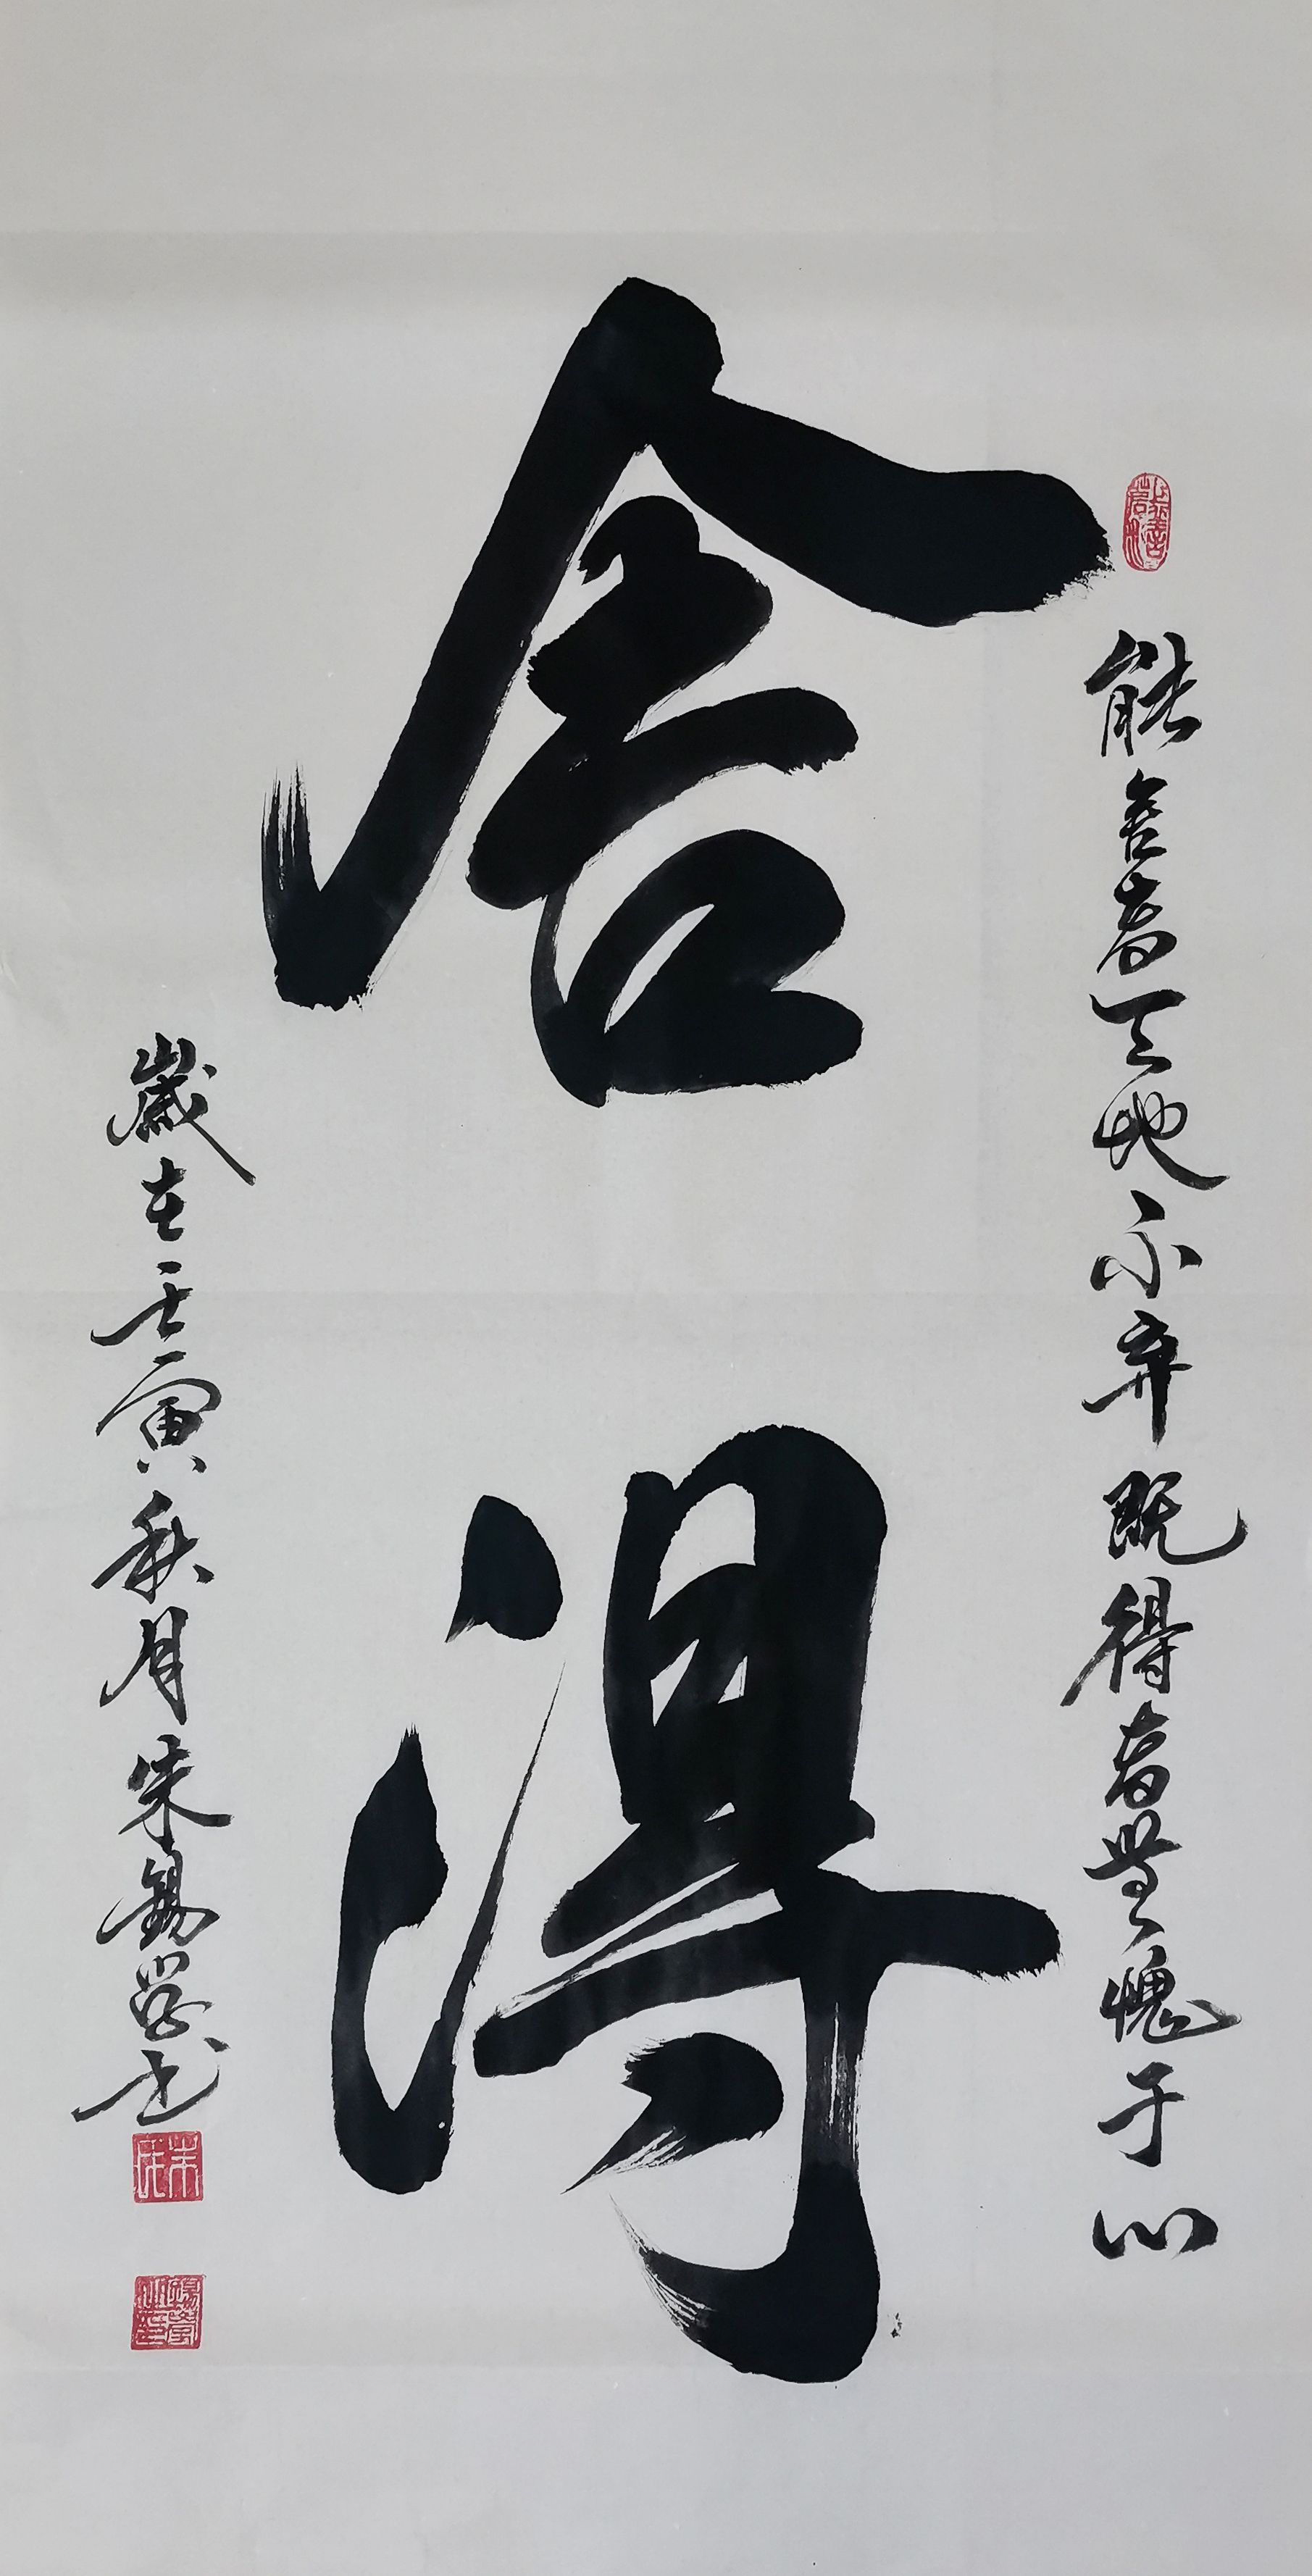 能舍者天地不弃既得者无愧于心
舍得
岁在壬寅秋月朱锡岩书
朱氏